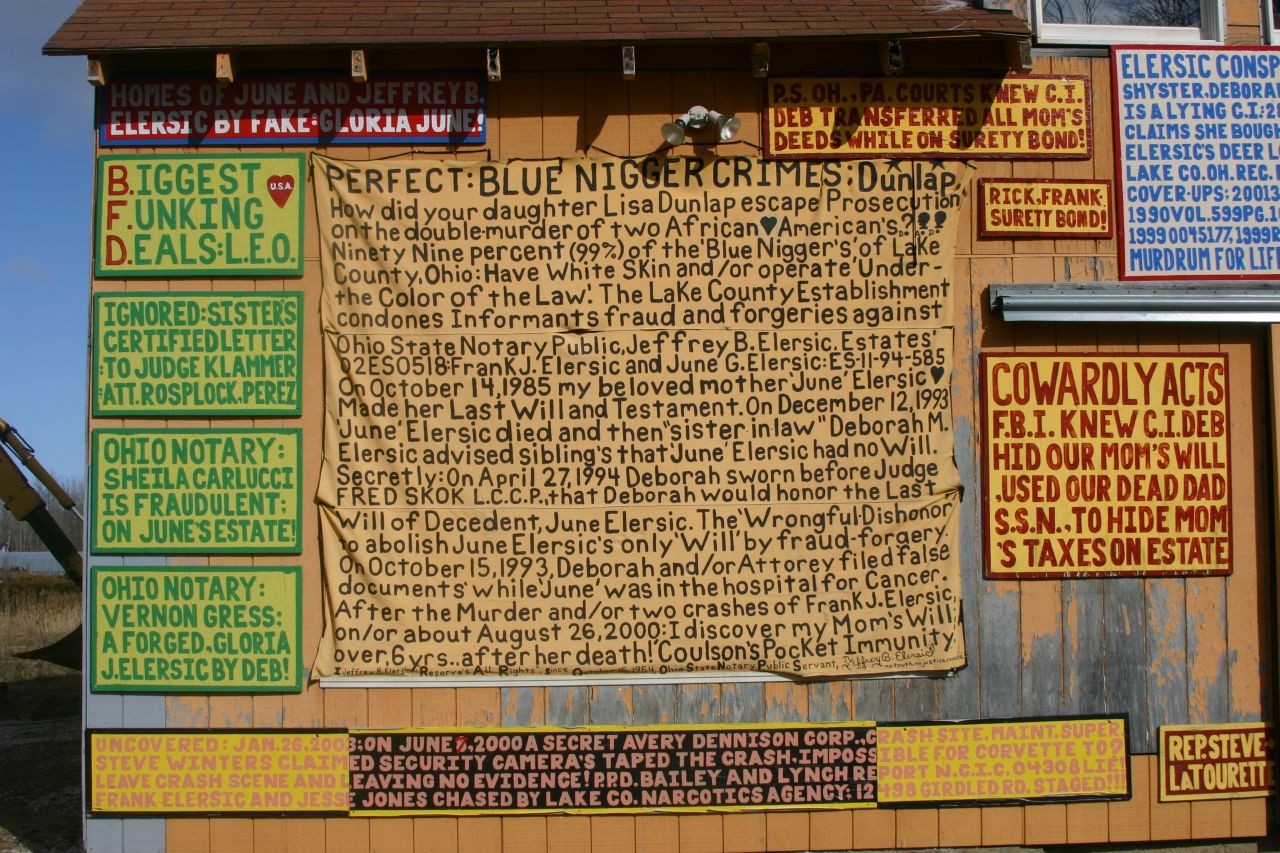 HOMES OF JUNE AND JEFFREY B.
ELERSIC BY FAKE: GLORIA JUNE!
B.IGGEST
F.UNKING
D.EALS:L.E.O.
U.S.A.
IGNORED:SISTER'S
CERTIFIED LETTER
:TO JUDGE KLAMMER
:ATT.ROSPLOCK.PEREZ
OHIO NOTARY:
SHEILA CARLUCCI
IS FRAUDULENT;
ON JUNE'S ESTATE!
OHIO NOTARY:
VERNON GRESS:
A FORGED.GLORIA
J.ELERSIC BY DEB!
PERFECT:BLUE NIGGER CRIMES:Dunlap,
How did your daughter Lisa Dunlap escape Prosecution
on the double-murder of two African♥American's?
Ninety Nine percent (99%) of the 'Blue Nigger's' of Lake
County, Ohio: Have White Skin and/or operate 'Under-
the Color of the Law'. The Lake County Establishment
condones Informants fraud and forgeries against
Ohio State Notary Public, Jeffrey B. Elersic. Estates'
02ES0518:Frank J. Elersic and June G. Elersic:ES-11-94-585
On October 14,1985 my beloved mother 'June' Elersic♥
Made her Last Will and Testament. On December 12,1993
'June' Elersic died and then "sister in law" Deborah M.
Elersic advised sibling's that 'June' Elersic had no Will.
Secretly: On April 27,1994 Deborah sworn before Judge
FRED SKOK L.C.C.P., that Deborah would honor the Last
Will of Decedent, June Elersic. The 'Wrongful-Dishonor
to abolish June Elersic's only 'Will' by fraud-forgery.
On October 15,1993, Deborah and/or Attorey filed false
documents' while 'June' was in the hospital for Cancer.
After the Murder and/or two crashes of Frank J. Elersic,
on/or about August 26,2000:I discover my Mom's Will
over 6 yrs..after her death! Coulson's Pocket Immunity
I Jeffrey B. Elersic Reserve's All Rights'; since October 16, 1954, Ohio State Notary Public Servant, Jeffrey B. Elersic
P.S. OH., PA. COURTS KNEW C.I.
DEB TRANSFERRED ALL MOM'S
DEEDS WHILE ON SURETY BOND!
RICK,FRANK.
SURETY BOND!
ELERSIC CONSP
SHYSTER.DEBORA
IS A LYING C.I.:2
CLAIMS SHE BOUG
ELERSIC'S DEER L
LAKE CO.OH.REC.
COVER-UPS; 20013
1990VOL.599PG.1
1999 0045177,1999R
MURDRUM FOR LIF
COWARDLY ACTS
F.B.I. KNEW C.I.DEB
HID OUR MOM'S WILL
.USED OUR DEAD DAD
S.S.N.,TO HIDE MOM
'S TAXES ON ESTATE
UNCOVERED: JAN.26,2003:ON JUNE 8,2000 A SECRET AVERY DENNISON CORP.,CRASH SITE.MAINT.SUPER.
STEVE WINTERS CLAIMED SECURITY CAMERA'S TAPED THE CRASH.IMPOSSIBLE FOR CORVETTE TO?
LEAVE CRASH SCENE AND LEAVING NO EVIDENCE! P.P.D. BAILEY AND LYNCH REPORT N.C.I.C. 04308 LIE!
FRANK ELERSIC AND JESSE JONES CHASED BY LAKE CO. NARCOTICS AGENCY; 12498 GIRDLED RD. STAGED!!!
REP.STEVE
LATOURETT